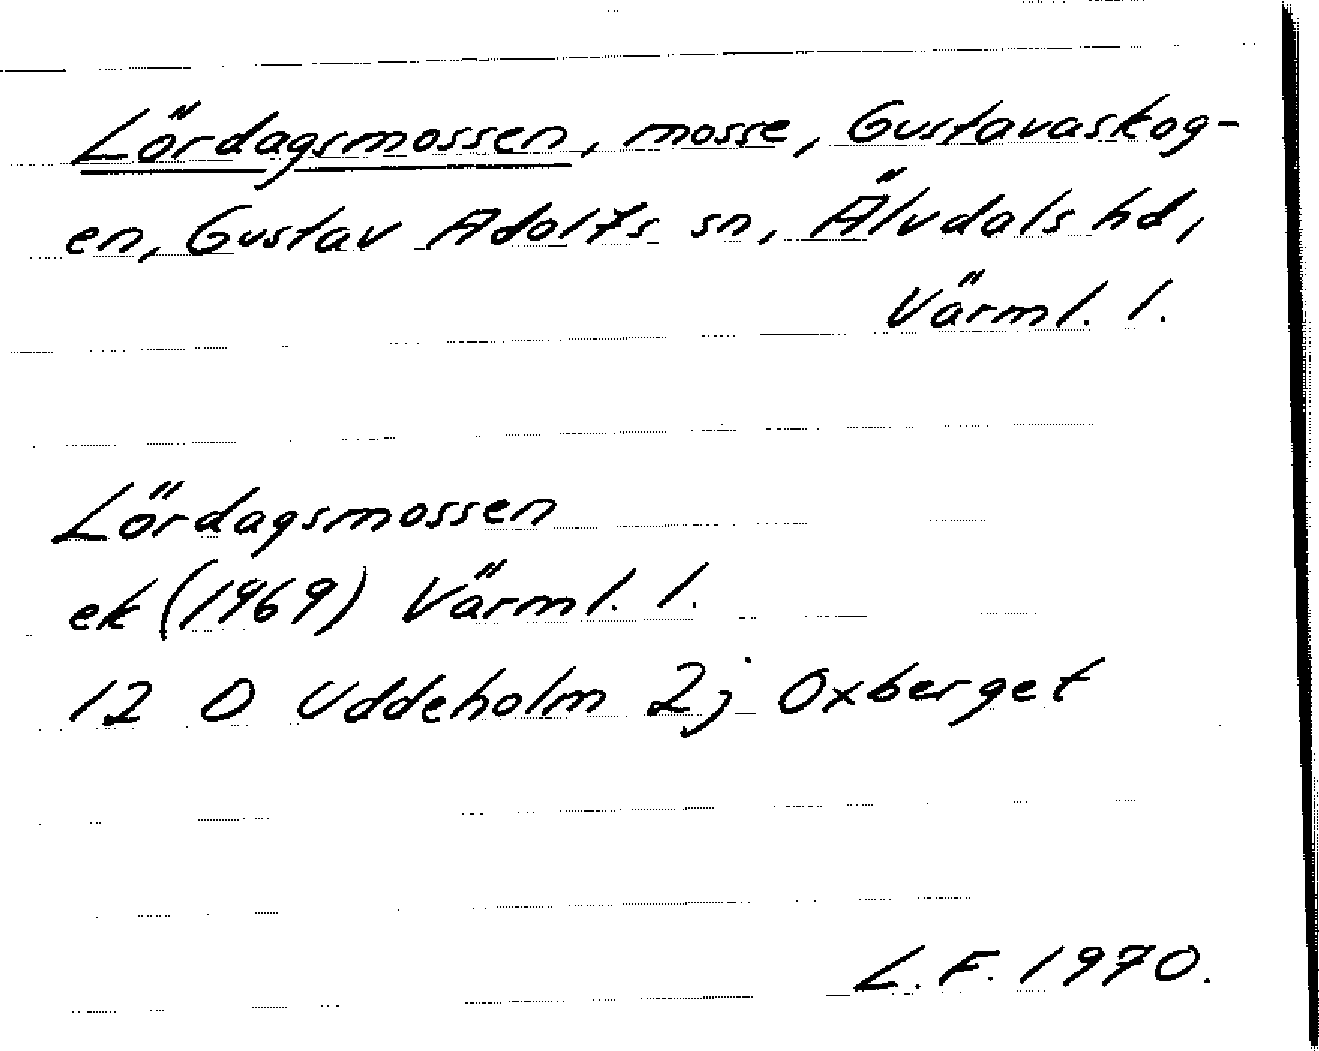 Lördagsmossen, mosse, Gustavaskog-
en, Gustav Adolfs sn, Älvdals hd,
Värml. l.
Lördagsmossen
ek (1969) Värml. l.
12 D Uddeholm 2j Oxberget
L.F. 1970.